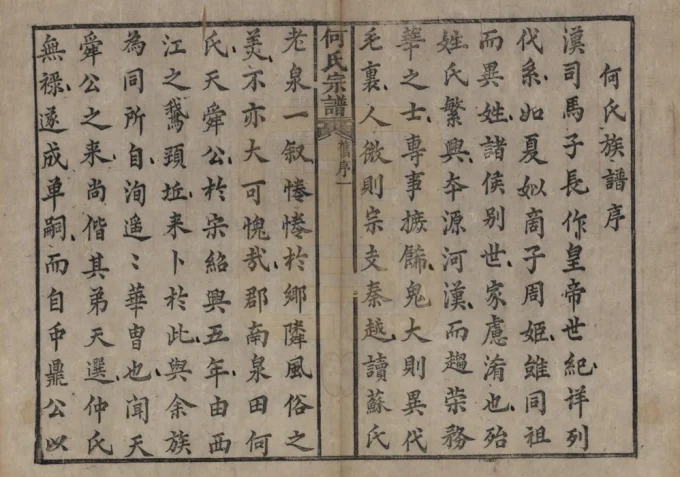 何氏族譜序
漢司馬子長作皇帝世紀詳列
代系如夏姒商子周姬雖同祖
而異姓諸侯别世家慮淆也殆
姓氏繁興夲源河漢而趨荣務
華之士專事掞餙鬼大則異代
毛裏人微則宗支秦越讀蘇氏
何氏宗譜
舊序一
老泉一叙惓惓於鄉隣風俗之
美不亦大可愧哉郡南泉田何
氏天舜公於宋紹興五年由西
江之鵝頸坵来卜於此與余族
為同所自洵遥〻華曺也聞天
舜公之来尚偕其弟天選仲氏
無禄遂成单嗣而自中鼎公以